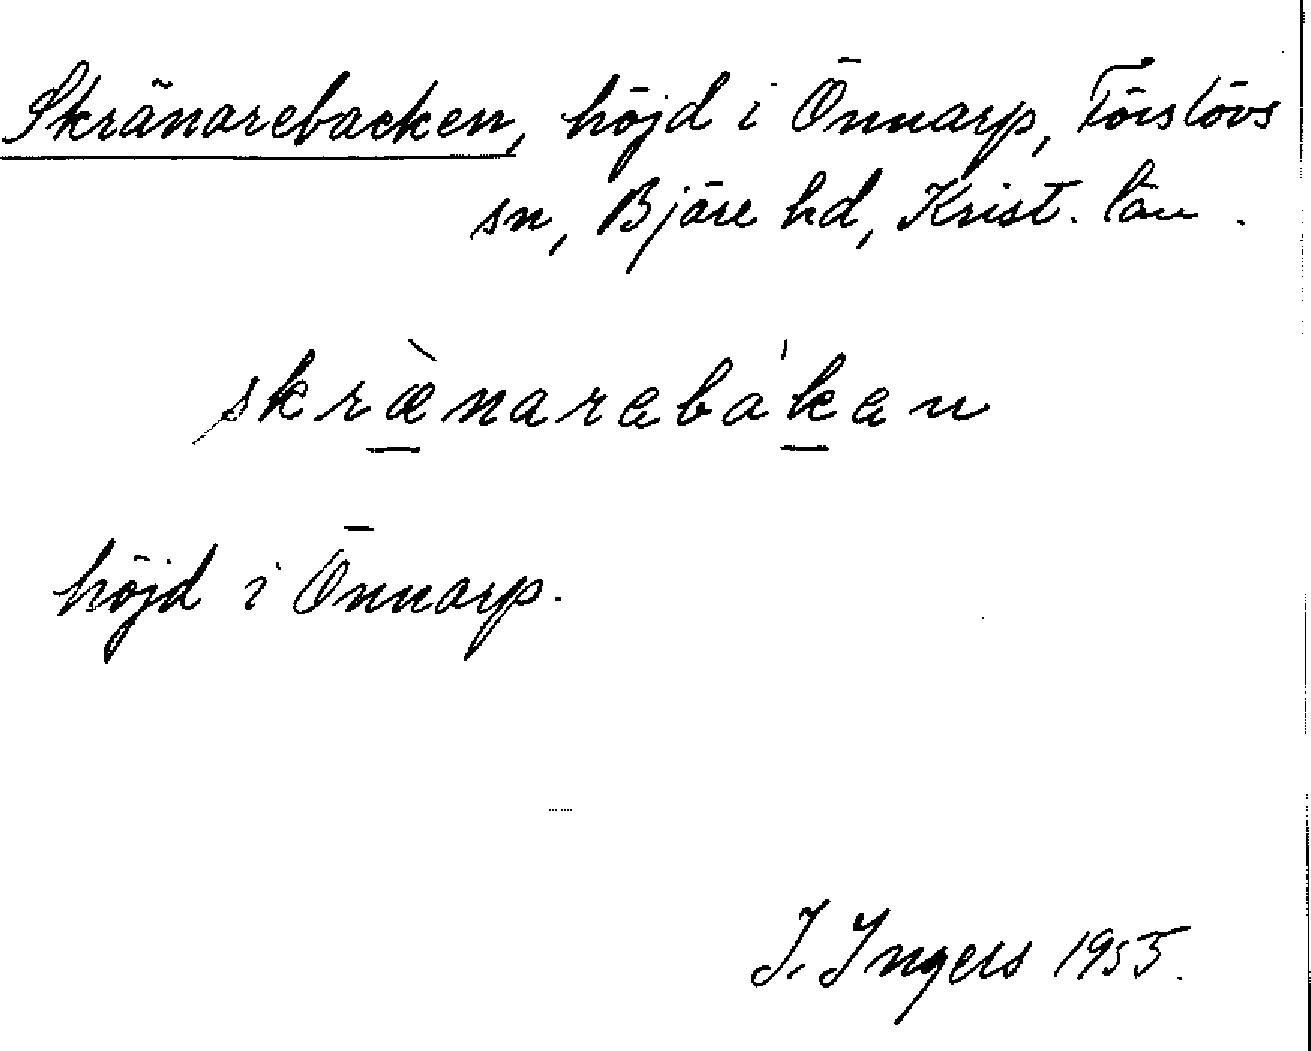 Skränarebacken, höjd i Önnarp, Förslövs
sn, Bjäre hd, Krist. län.
skræ̀narebáken
höjd i Önnarp.
I. Ingers 1955.